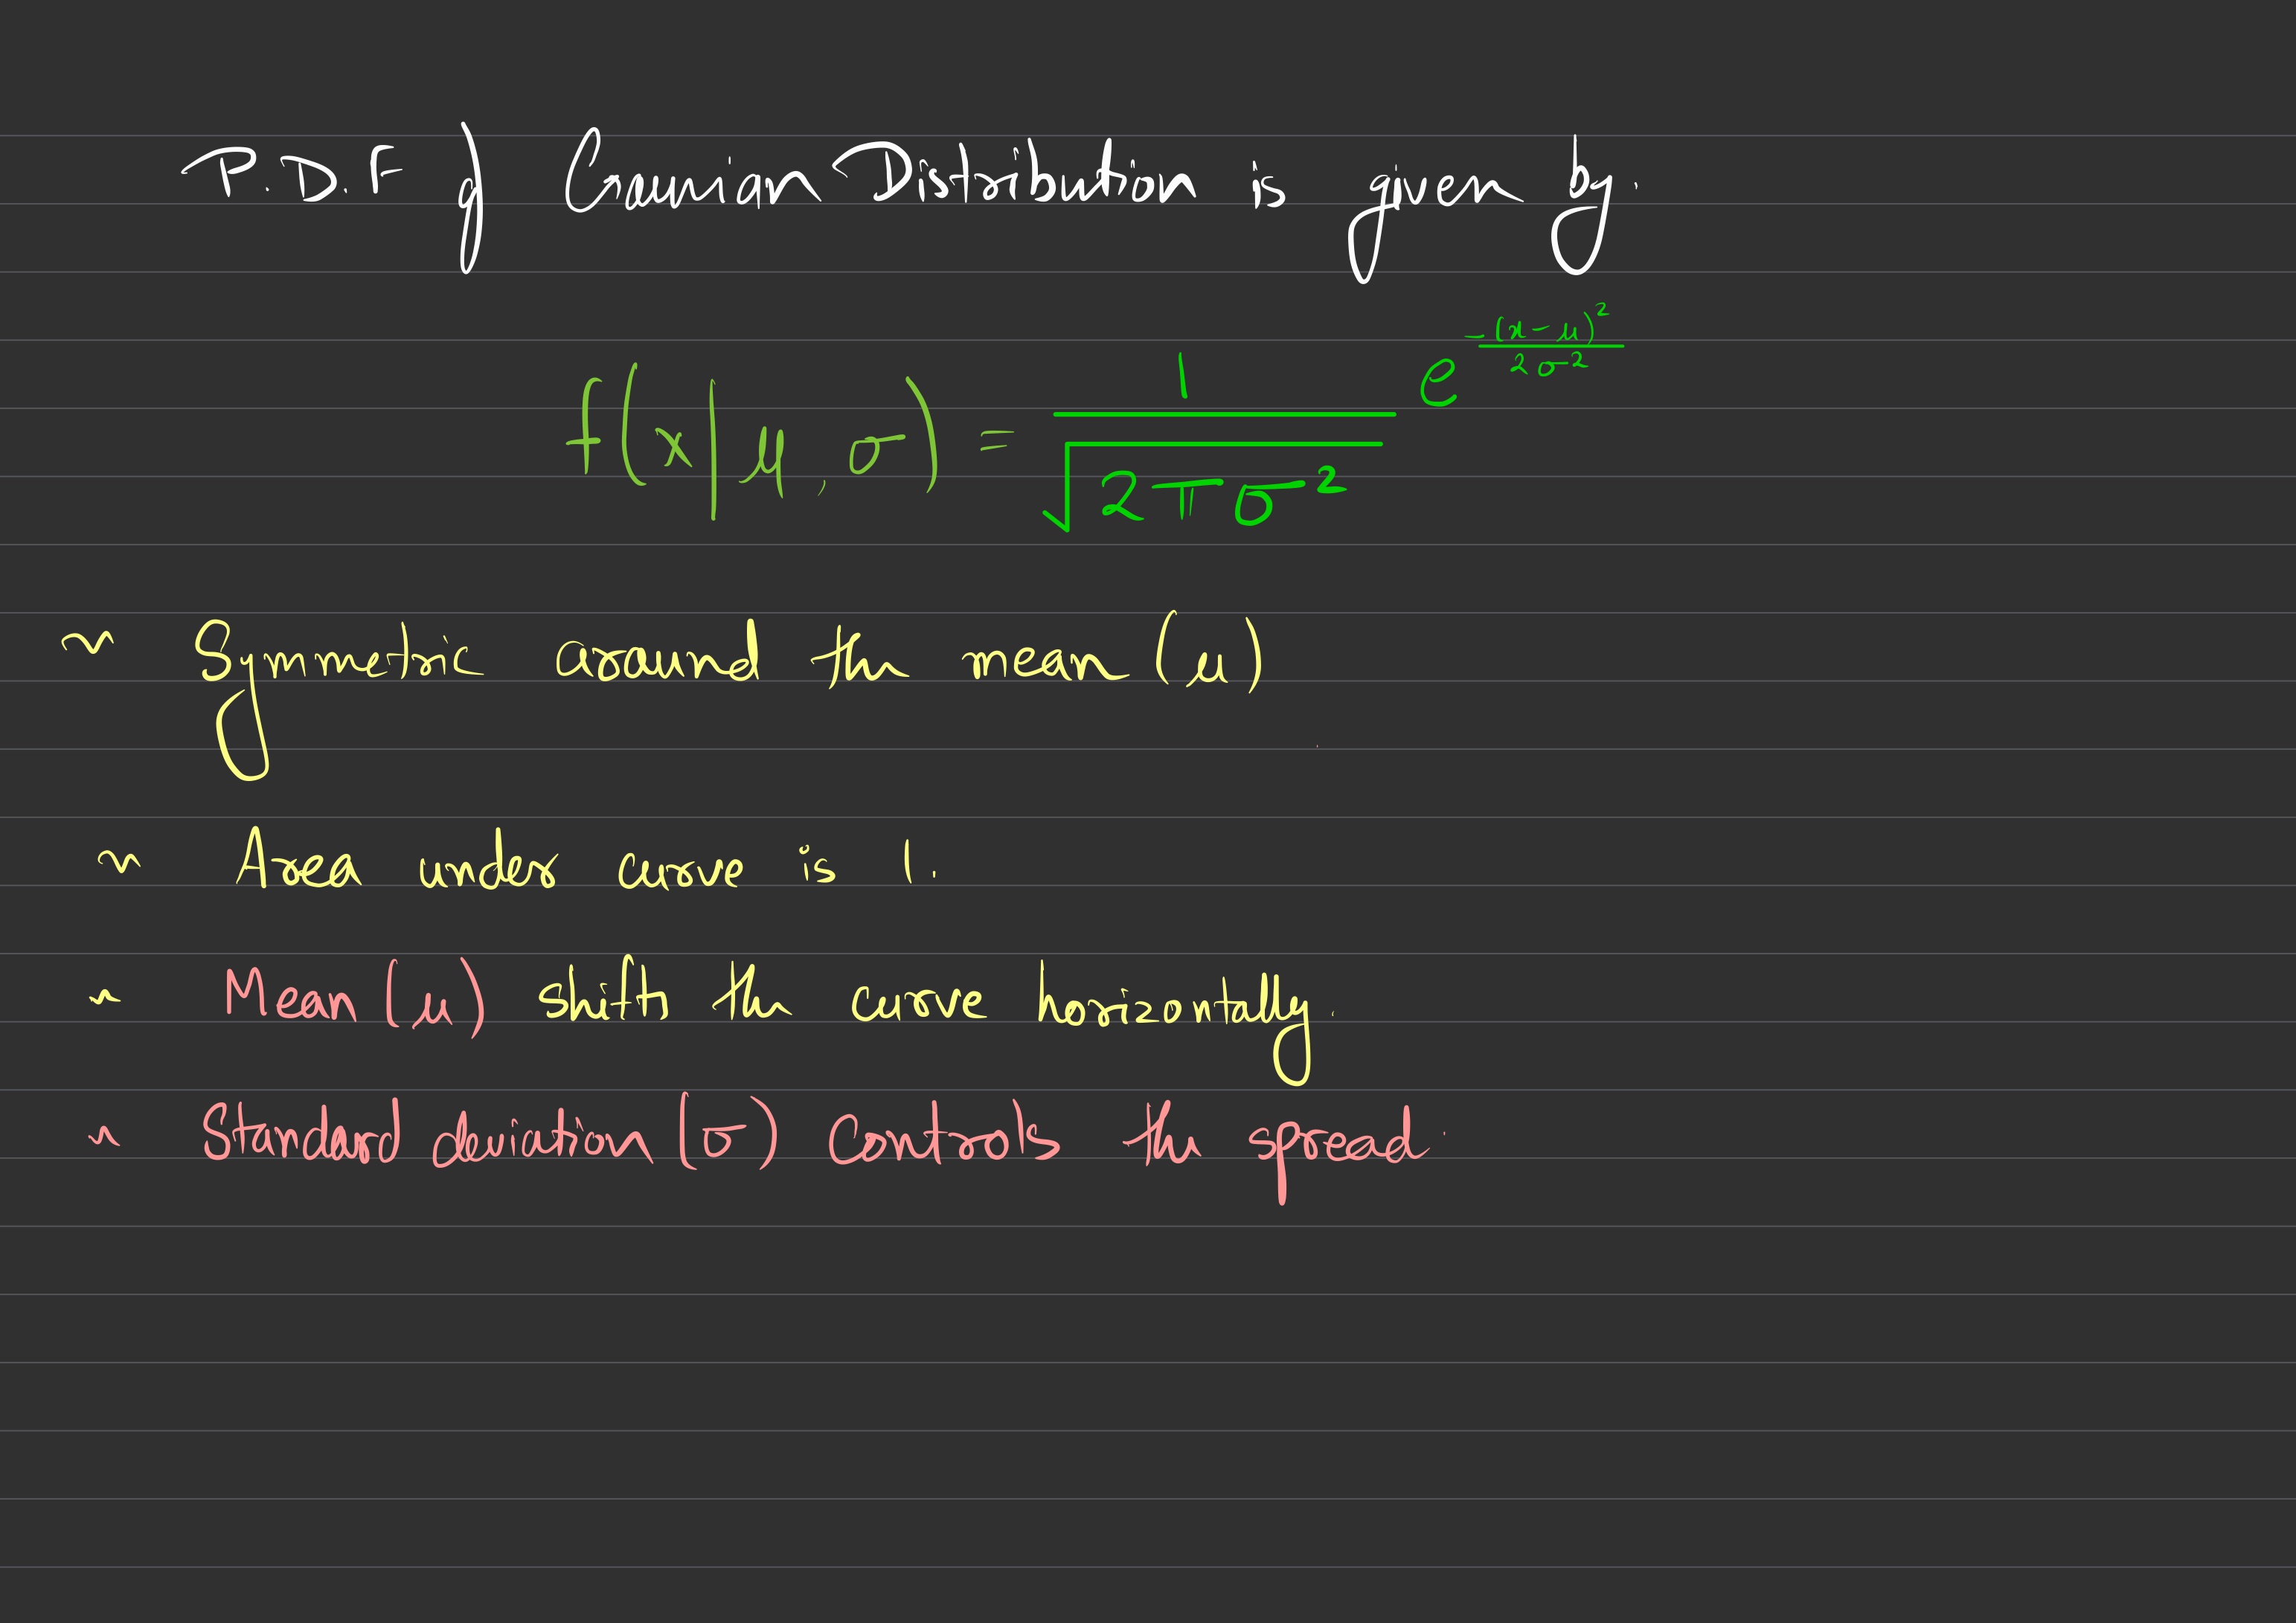 P.D.F of Gaussian Distribution is given by.
f(x|μ,σ) = 1/√(2πσ²) e^(-(x-μ)²/2σ²)
~ Symmetric around the mean (μ)
~ Area under curve is 1.
~ Mean (μ) shifts the curve horizontally.
~ Standard deviation (σ) controls the spread.